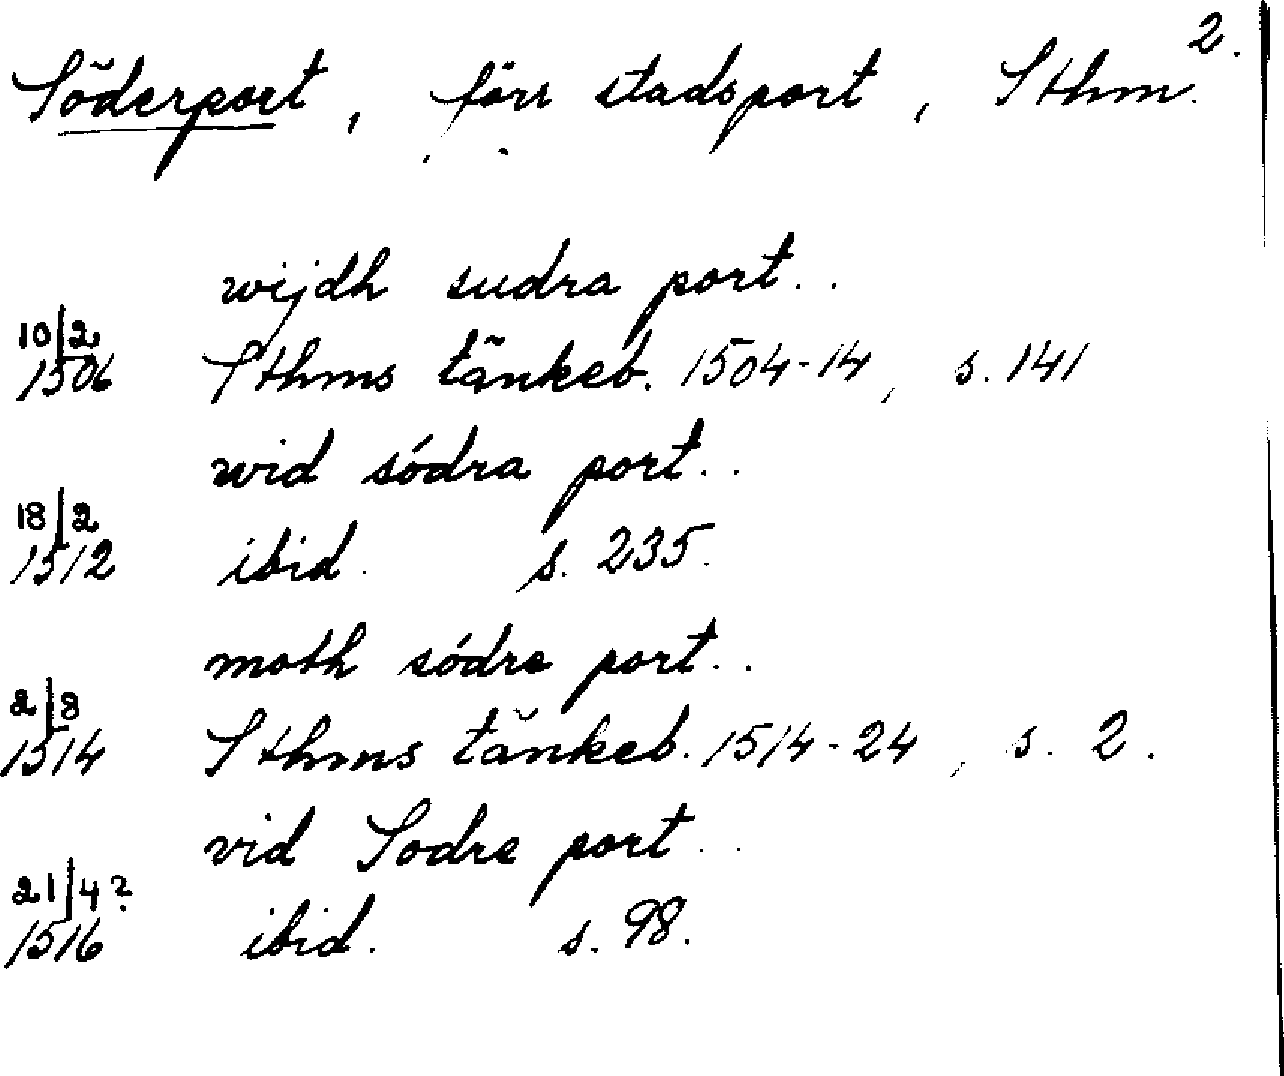 2.
Söderport, förr stadsport, Sthm.
wijdh sudra port..
10/2
1506 Sthms tänkeb. 1504-14, s. 141
wid sódra port..
18/2
1512 ibid. s. 235.
moth sódre port..
2/8
1514 Sthms tänkeb. 1514-24, s. 2.
vid Sodre port..
21/4?
1516 ibid. s. 98.